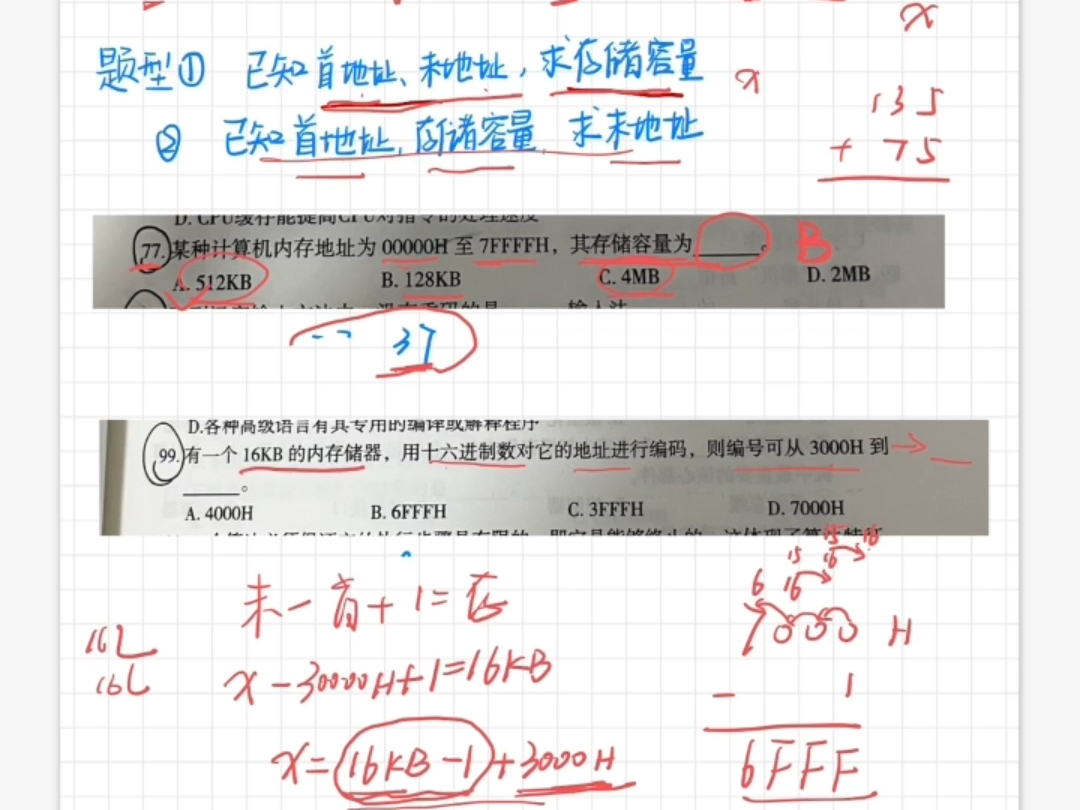 x
题型① 已知首地址、末地址，求存储容量
x
135
② 已知首地址，存储容量，求末地址
+ 75
D. CPU缓存能提高CPU对指令的处理速度
77.某种计算机内存地址为 00000H 至 7FFFFH，其存储容量为______。 B
A. 512KB B. 128KB C. 4MB D. 2MB
37
D.各种高级语言有其专用的编译或解释程序
99.有一个 16KB 的内存储器，用十六进制数对它的地址进行编码，则编号可从 3000H 到
______。
A. 4000H B. 6FFFH C. 3FFFH D. 7000H
15 16
15 16
6 16
末－首＋1＝存
7000 H
16L
16L
x－3000H＋1＝16KB
－ 1
x＝(16KB－1)＋3000H
6FFF